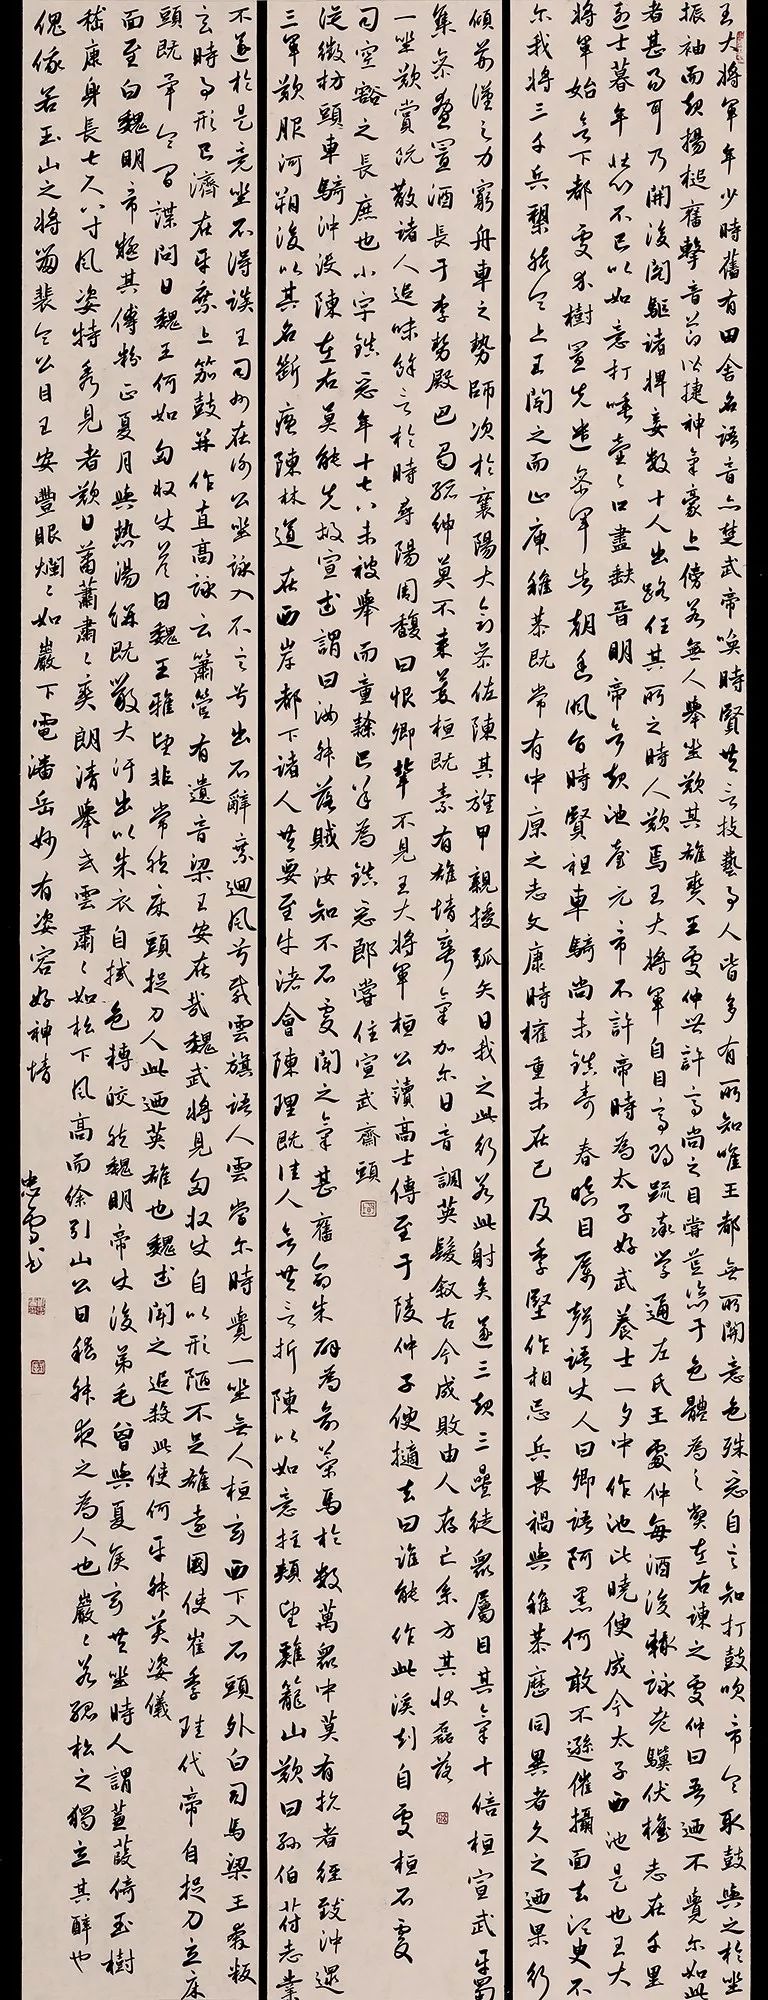 王大將軍年少時舊有田舍名語音亦楚武帝喚時賢共言技藝事人皆多有所知唯王都無所關意色殊惡自言知打鼓吹帝令取鼓與之於坐
振袖而起揚槌奮擊音節諧捷神氣豪上傍若無人舉坐歎其雄爽王處仲世許高尚之目嘗荒恣于色體為之弊左右諫之處仲曰吾迺不覺爾如此
者甚易耳乃開後閤驅諸婢妾數十人出路任其所之時人歎焉王大將軍自目高朗疏率學通左氏王處仲每酒後輒詠老驥伏櫪志在千里
烈士暮年壯心不已以如意打唾壺壺口盡缺晉明帝欲起池臺元帝不許帝時為太子好武養士一夕中作池比曉便成今太子西池是也王大
將軍始欲下都處分樹置先遣參軍告朝廷諷旨時賢祖車騎尚未鎮壽春瞋目厲聲語使人曰卿語阿黑何敢不遜催攝面去須臾不
爾我將三千兵槊腳令上王聞之而止庾稚恭既常有中原之志文康時權重未在己及季堅作相忌兵畏禍與稚恭歷同異者久之迺果行
傾荊漢之力窮舟車之勢師次於襄陽大會參佐陳其旌甲親援弧矢曰我之此行若此射矣遂三起三疊徒衆屬目其氣十倍桓宣武平蜀
集參僚置酒長于李勢殿巴蜀縉紳莫不來萃桓既素有雄情爽氣加爾日音調英發敘古今成敗由人存亡系才其狀磊落
一坐歎賞既散諸人追味餘言於時尋陽周馥曰恨卿輩不見王大將軍桓公讀高士傳至于陵仲子便擿去曰誰能作此溪刻自處桓石虔
司空豁之長庶也小字鎮惡年十七八未被舉而童隸已呼為鎮惡郎嘗住宣武齋頭
從徵枋頭車騎沖沒陳左右莫能先救宣武謂曰汝叔落賊汝知不石虔聞之氣甚奮命朱辟為副策馬於數萬衆中莫有抗者徑致沖還
三軍歎服河朔後以其名斷瘧陳林道在西岸都下諸人共要至牛渚會陳理既佳人欲共言折陳以如意拄頰望雞籠山歎曰孫伯符志業
不遂於是竟坐不得談王司州在謝公坐詠入不言兮出不辭乘迴風兮載雲旗語人雲當爾時覺一坐無人桓玄西下入石頭外白司馬梁王奔叛
玄時事形已濟在平乘上笳鼓並作直高詠云簫管有遺音梁王安在哉魏武將見匈奴使自以形陋不足雄遠國使崔季珪代帝自捉刀立床
頭既畢令間諜問曰魏王何如匈奴使答曰魏王雅望非常然床頭捉刀人此迺英雄也魏武聞之追殺此使何平叔美姿儀
面至白魏明帝疑其傅粉正夏月與熱湯餅既噉大汗出以朱衣自拭色轉皎然魏明帝使後弟毛曾與夏侯玄共坐時人謂蒹葭倚玉樹
嵇康身長七尺八寸風姿特秀見者歎曰蕭蕭肅肅爽朗清舉或雲肅肅如松下風高而徐引山公曰嵇叔夜之為人也巖巖若孤松之獨立其醉也
傀俄若玉山之將崩裴令公目王安豐眼爛爛如巖下電潘岳妙有姿容好神情